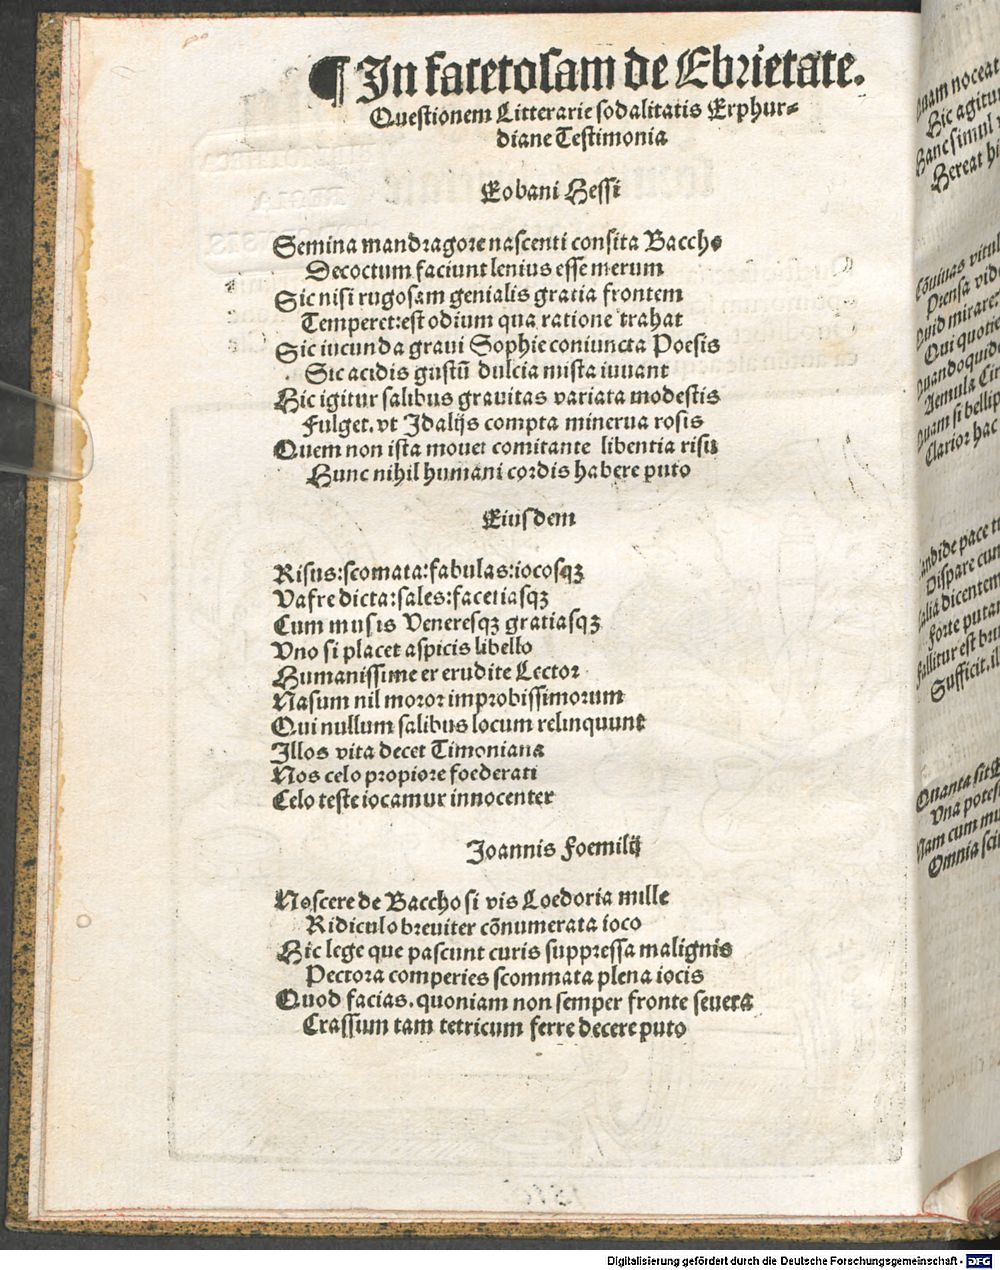 ¶ In facetosam de Ebrietate.
Questionem Litterarie sodalitatis Erphur-
diane Testimonia
Eobani Hessi
Semina mandragore nascenti consita Baccho
Decoctum faciunt lenius esse merum
Sic nisi rugosam genialis gratia frontem
Temperet: est odium qua ratione trahat
Sic iucunda graui Sophie coniuncta Poesis
Sic acidis gustū dulcia mista iuuant
Hic igitur salibus grauitas variata modestis
Fulget. vt Idalijs compta minerua rosis
Quem non ista mouet comitante libentia risu
Hunc nihil humani cordis habere puto
Eiusdem
Risus: scomata: fabulas: iocosqꝫ
Vafre dicta: sales: facetiasqꝫ
Cum musis Veneresqꝫ gratiasqꝫ
Vno si placet aspicis libello
Humanissime er erudite Lector
Nasum nil moror improbissimorum
Qui nullum salibus locum relinquunt
Illos vita decet Timoniana
Nos celo propiore foederati
Celo teste iocamur innocenter
Joannis Foemilij
Noscere de Baccho si vis Loedoria mille
Ridiculo breuiter cōnumerata ioco
Hic lege que pascunt curis suppressa malignis
Pectora comperies scommata plena iocis
Quod facias. quoniam non semper fronte seuera
Crassum tam tetricum ferre decere puto
noceat
Hic agitur
Hanc simul
Hereat
vitul
Prensa
Quid mirare
Qui quotie
Quandoquide
Aemula
Quam si bellip
Clarior hac
pace
Dispare cum
dicentem
Forte putan
Fallitur est
Sufficit.
Quanta sit
Vna potes
Nam cum mu
Omnia sci
Digitalisierung gefördert durch die Deutsche Forschungsgemeinschaft - DFG